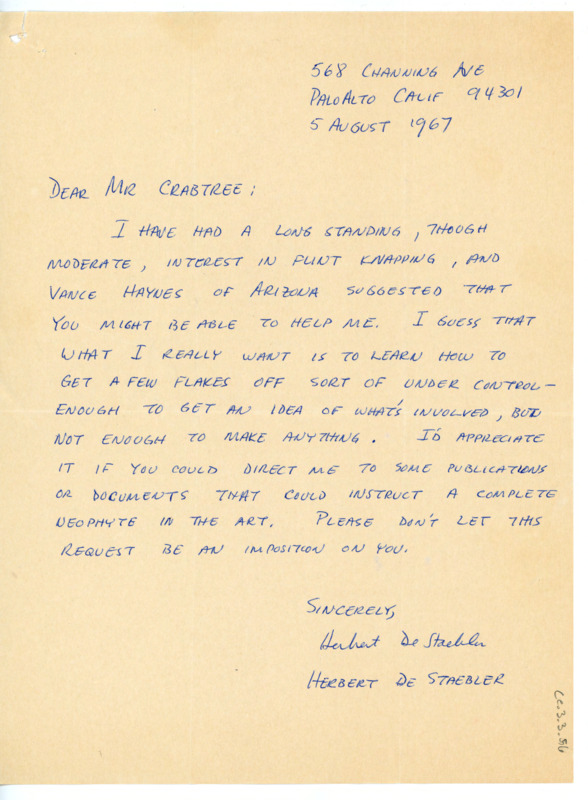 568 CHANNING AVE
PALO ALTO CALIF 94301
5 AUGUST 1967
DEAR MR CRABTREE;
I HAVE HAD A LONG STANDING, THOUGH
MODERATE, INTEREST IN FLINT KNAPPING, AND
VANCE HAYNES OF ARIZONA SUGGESTED THAT
YOU MIGHT BE ABLE TO HELP ME. I GUESS THAT
WHAT I REALLY WANT IS TO LEARN HOW TO
GET A FEW FLAKES OFF SORT OF UNDER CONTROL—
ENOUGH TO GET AN IDEA OF WHAT'S INVOLVED, BUT
NOT ENOUGH TO MAKE ANYTHING. I'D APPRECIATE
IT IF YOU COULD DIRECT ME TO SOME PUBLICATIONS
OR DOCUMENTS THAT COULD INSTRUCT A COMPLETE
NEOPHYTE IN THE ART. PLEASE DON'T LET THIS
REQUEST BE AN IMPOSITION ON YOU.
SINCERELY,
Herbert De Staebler
HERBERT DE STAEBLER
Cc.3.3.56